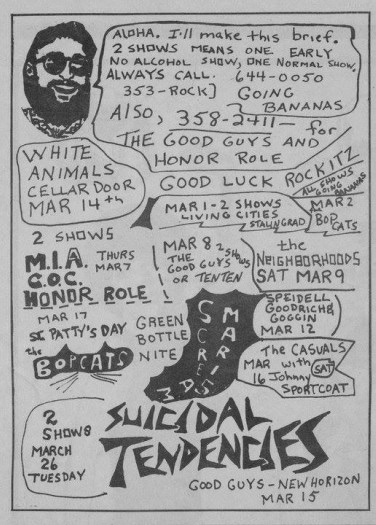 ALOHA. I'll make this brief.
2 SHOWS MEANS ONE EARLY
NO ALCOHOL SHOW, ONE NORMAL SHOW.
ALWAYS CALL. 644-0050
353-ROCK] GOING
BANANAS
ALSO, 358-2411 — for
THE GOOD GUYS AND
HONOR ROLE
GOOD LUCK ROCKITZ
ALL SHOWS
GOING
BANANAS
WHITE
ANIMALS
CELLAR DOOR
MAR 14th
MAR 1-2 SHOWS
LIVING CITIES
STALINGRAD
MAR 2
BOP
CATS
2 SHOWS
M.I.A
C.O.C.
HONOR ROLE
THURS
MAR 7
MAR 8 2 SHOWS
THE GOOD GUYS
OR TENTEN
the
NEIGHBORHOODS
SAT MAR 9
MAR 17
St. PATTY'S DAY
the
BOPCATS
GREEN
BOTTLE
NITE
SCREAM
MAR 13
SPEIDELL
GOODRICH &
GOGGIN
MAR 12
The CASUALS
MAR with SAT
16 Johnny
SPORTCOAT
2
SHOWS
MARCH
26
TUESDAY
SUICIDAL
TENDENCIES
GOOD GUYS - NEW HORIZON
MAR 15